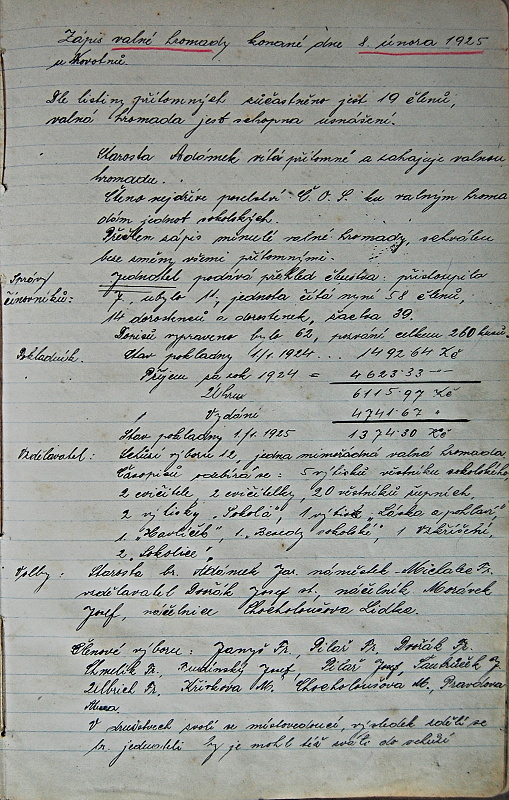 Zápis valné hromady konané dne 8. února 1925
u Novotnů.
Dle listiny přítomných súčastněno jest 19 členů,
valná hromada jest schopna usnášení.
Starosta Adámek vítá přítomné a zahajuje valnou
hromadu.
Čteno nejdříve poselství Č. O. S. ku valným hroma
dám jednot sokolských.
Přečten zápis minulé valné hromady, schválen
beze změny všemi přítomnými.
Správy
činovníků:
Jednatel podává přehled členstva: přistoupilo
7, ubylo 11, jednota čítá nyní 58 členů,
14 dorostenců a dorostenek, žactva 39.
Dopisů vypraveno bylo 62, pozvání celkem 260 kusů.
Pokladník. Stav pokladny 1/1 1924 ... 1492.64 Kč
Příjem za rok 1924 = 4623.33 —
Úhrn 6115.97 Kč
Vydání 4741.67 "
Stav pokladny 1./1. 1925 1374.30 Kč
Vzdělavatel: Schůzí výboru 12, jedna mimořádná valná hromada
Časopisů odebírá se: 5 výtisků věstníku sokolského,
2 cvičitele, 2 cvičitelky, 20 věstníků župních,
2 výtisky "Sokola", 1 výtisk "Láska a pohlaví"
1 "Havlíček", 1 "Besedy sokolské", 1 Vzkříšení,
2 "Sokolíče"
Volby: Starosta br. Adámek Jar. náměstek Fr.
vzdělavatel Dvořák Josef st., náčelník Morávek
Josef, náčelnice Chocholoušova Lidka.
Členové výboru: Janyš Fr., Pilař Fr., Dvořák Fr.
Chmelík Fr., Josef, Pilař Josef, J.
Fr., Křivkova M., Chocholoušova M., Pravdova
V družstvech zvolí se místovedoucí, výsledek sdělí se
br. jednateli by je mohl též zváti do schůzí